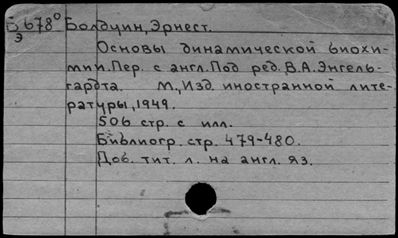 Б 678⁰ Болдуин, Эрнест.
Э
Основы динамической биохи-
мии. Пер. с англ. Под ред. В.А. Энгель-
гардта. М., Изд. иностранной лите-
ратуры, 1949.
506 стр. с илл.
Библиогр. стр. 479-480.
Доб. тит. л. на англ. яз.